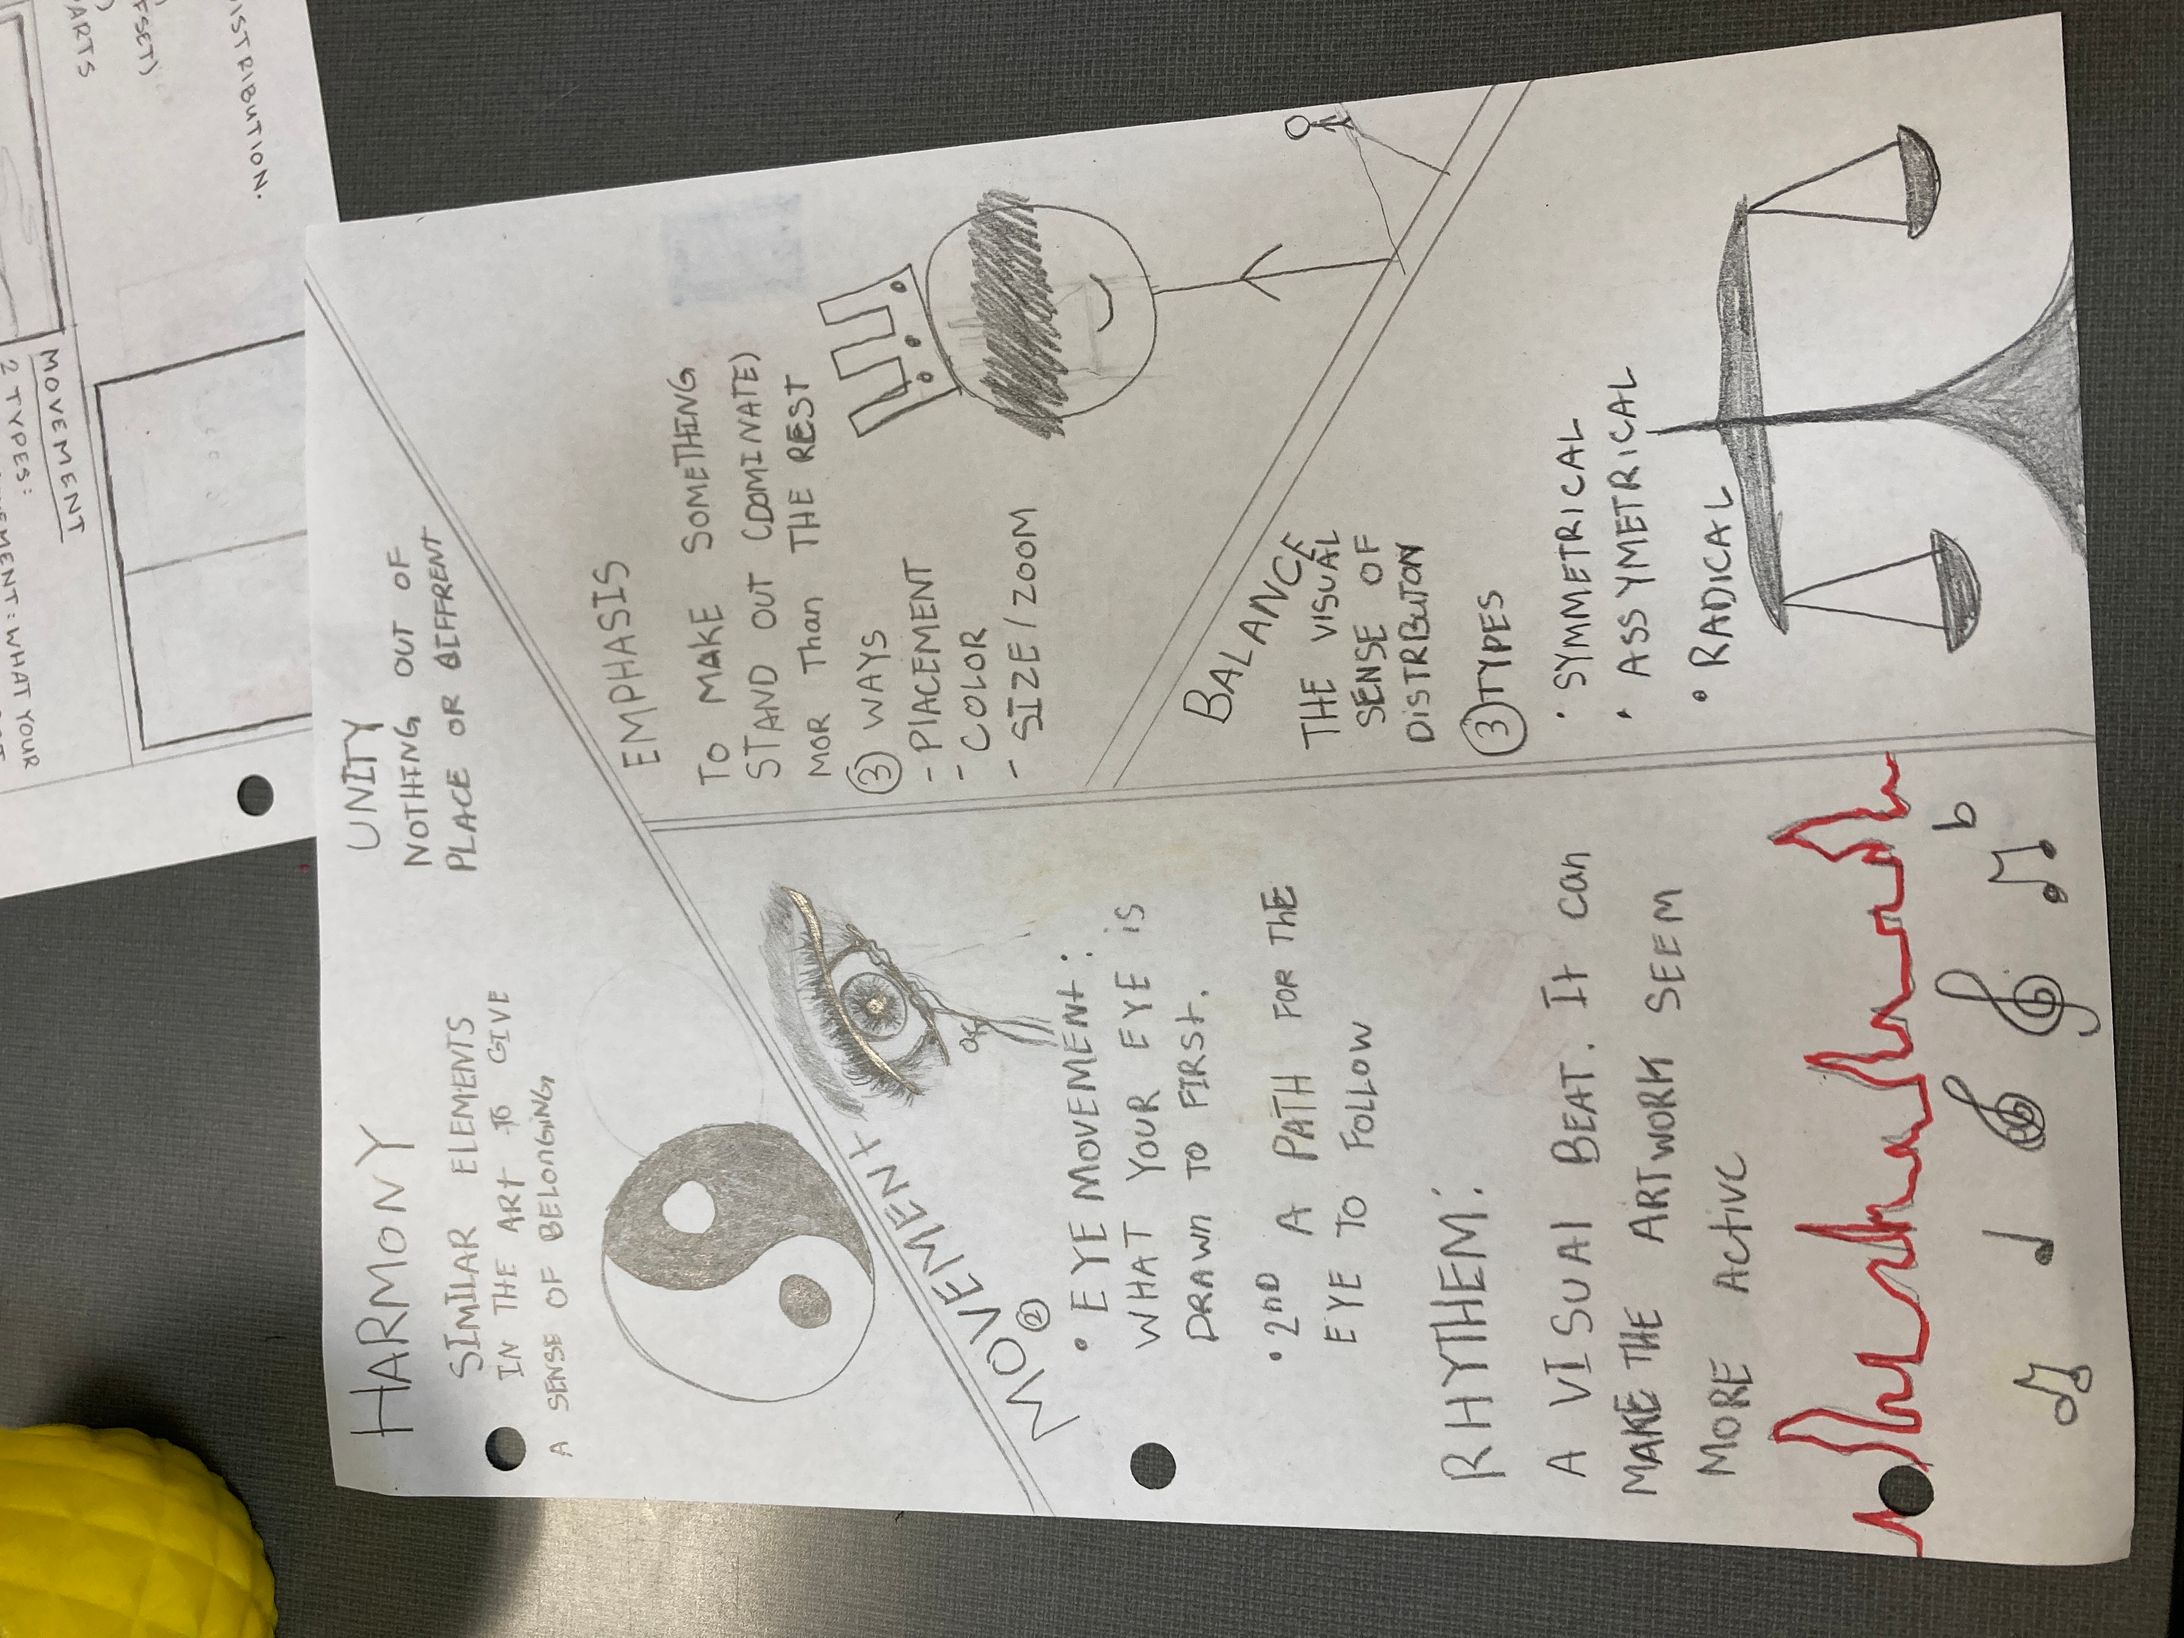 HARMONY
SIMILAR ELEMENTS
IN THE ART TO GIVE
A SENSE OF BELONGING
UNITY
NOTHING OUT OF
PLACE OR DIFFRENT
MOVEMENT
②
• EYE MOVEMENT:
WHAT YOUR EYE IS
DRAWN TO FIRST.
• 2ND A PATH FOR THE
EYE TO FOLLOW
EMPHASIS
TO MAKE SOMETHING
STAND OUT (DOMINATE)
MOR Than THE REST
③ WAYS
- PlACEMENT
- COLOR
- SIZE/ZOOM
RHYTHEM:
A VISUAl BEAT. It can
MAKE THE ARTWORK SEEM
MORE ACTIVE
b
BALANCE
THE VISUAL
SENSE OF
DISTRBUTON
③ TYPES
• SYMMETRICAL
• ASSYMETRICAL
• RADICAL
ISTRIBUTION.
FSET)
ARTS
MOVEMENT
2 TYPES:
EMENT: WHAT YOUR